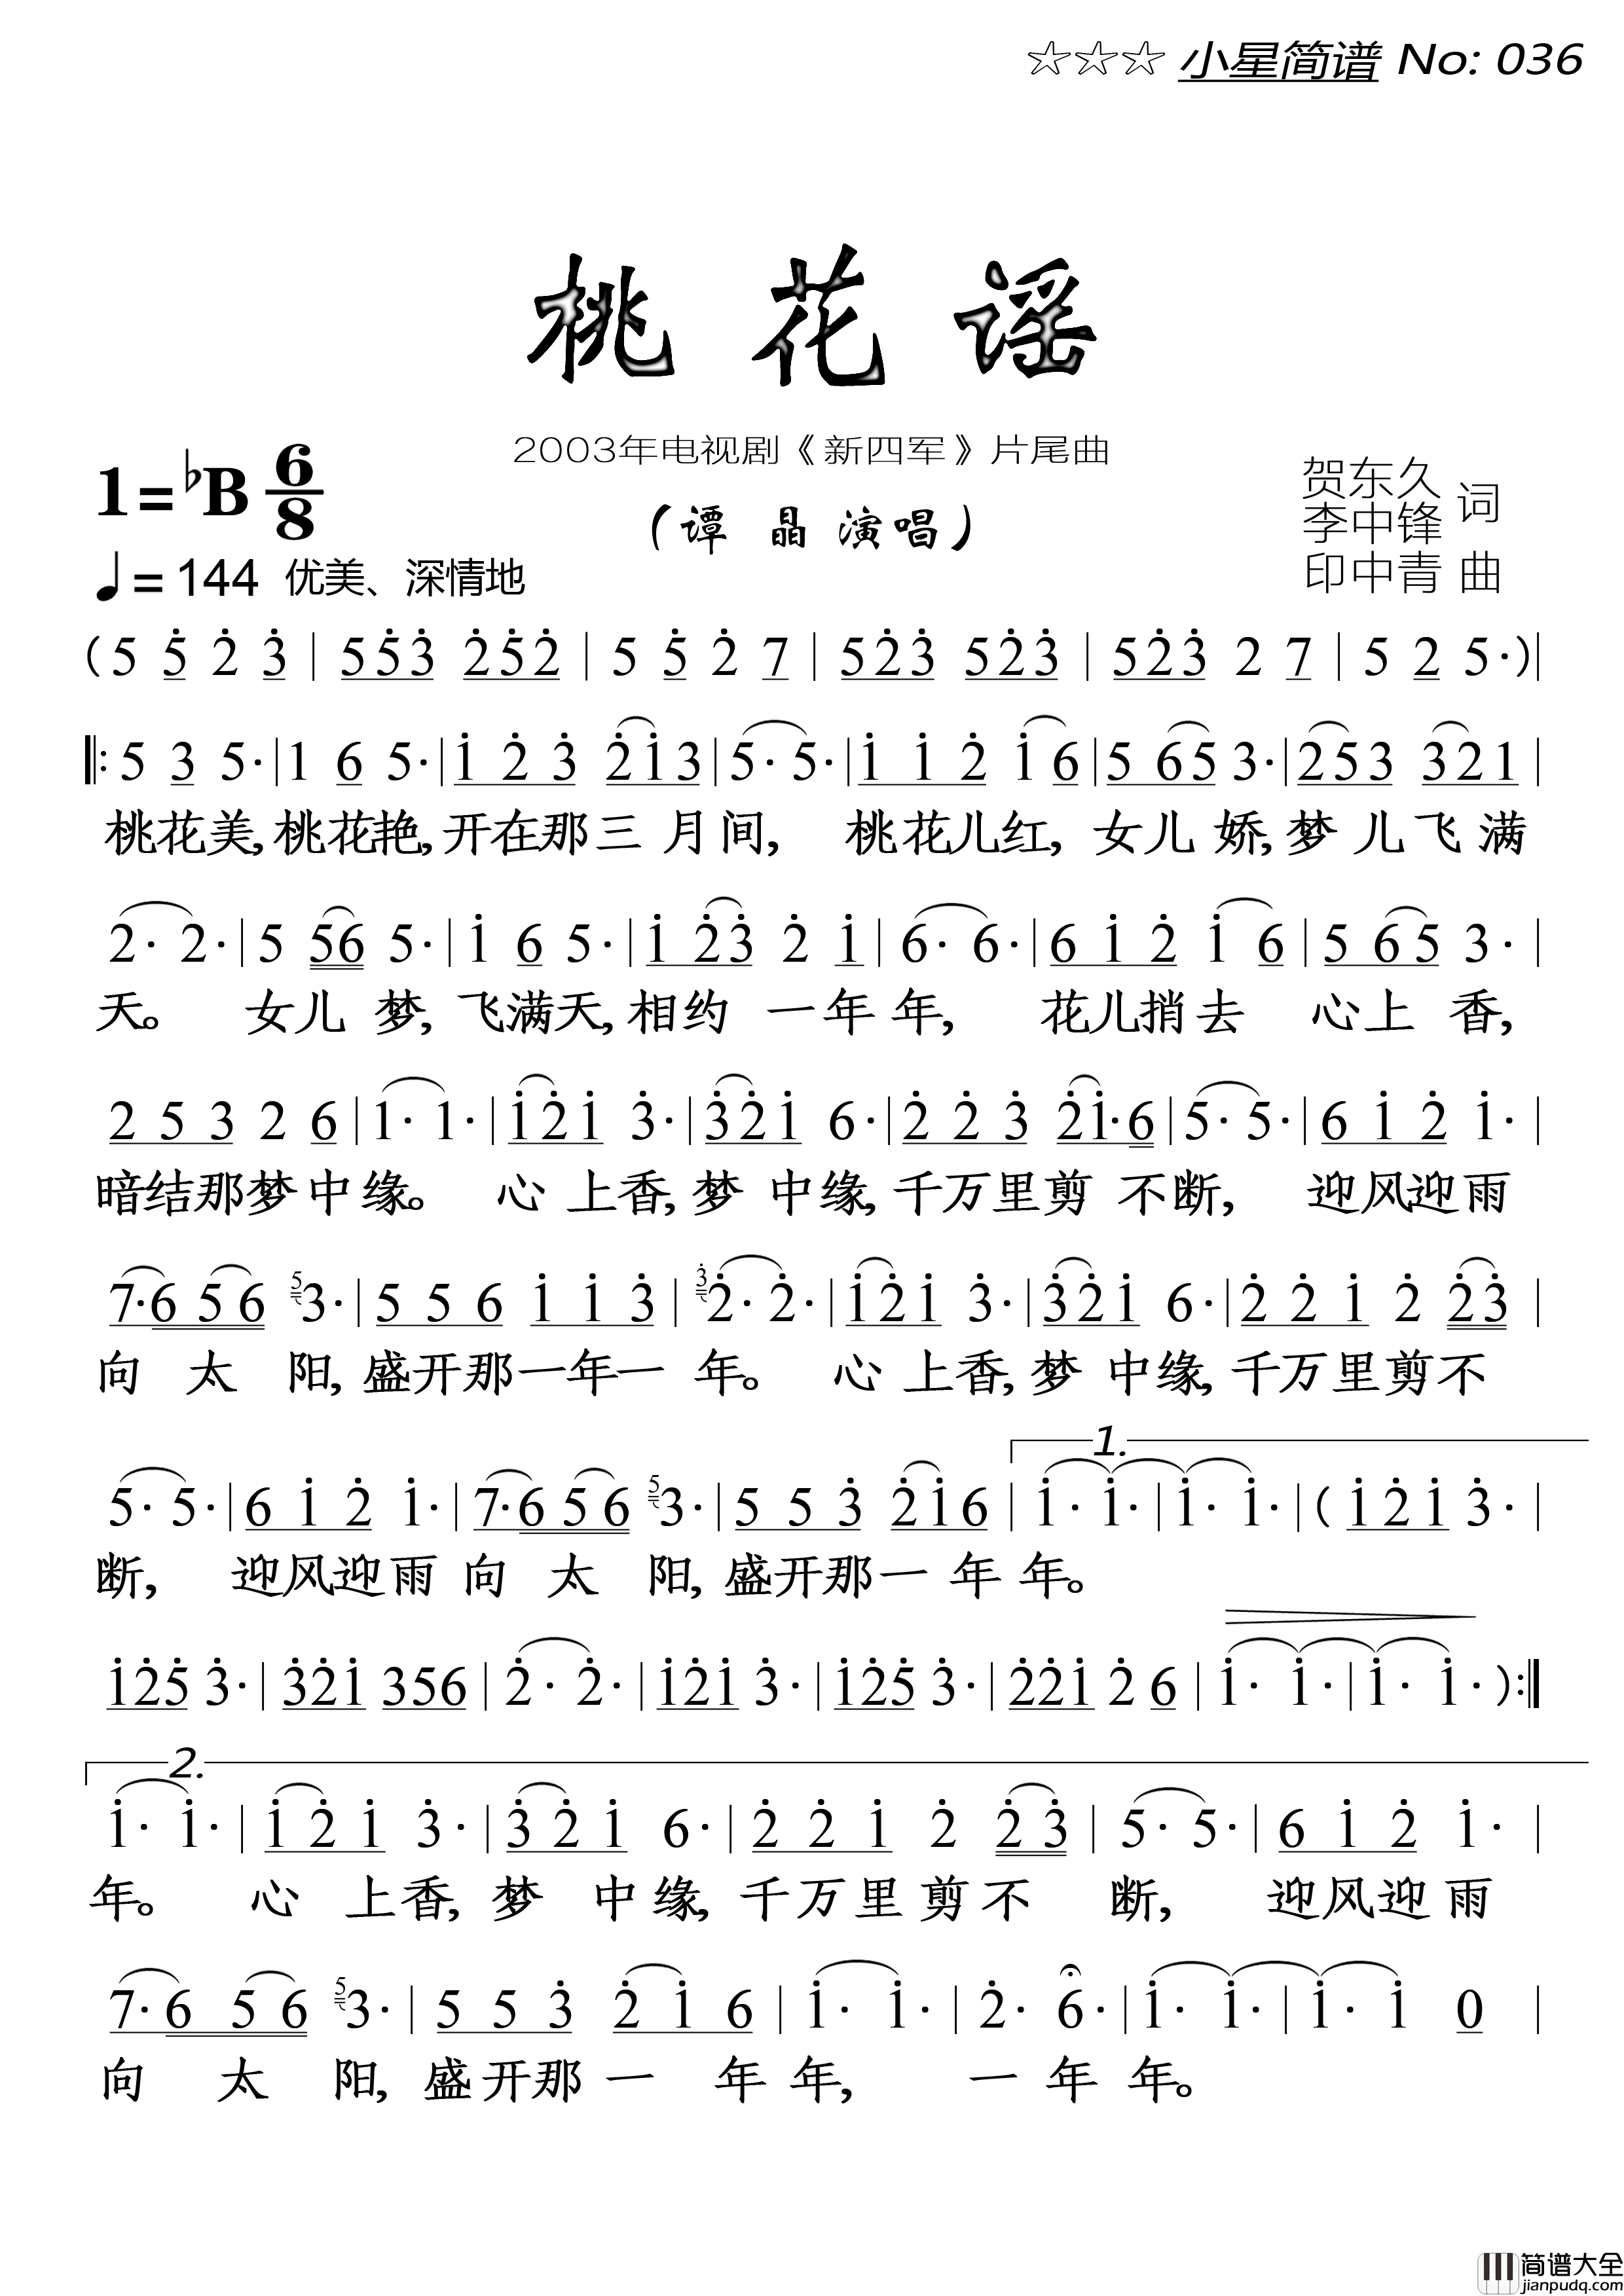 ☆☆☆ 小星简谱 No: 036
桃花谣
2003年电视剧《新四军》片尾曲
(谭晶演唱)
1=♭B 6/8
♩=144 优美、深情地
贺东久
李中锋 词
印中青 曲
( 5 5̇ 2̇ 3̇ | 5 5̇ 3̇ 2̇ 5̇ 2̇ | 5 5̇ 2̇ 7 | 5 2̇ 3̇ 5 2̇ 3̇ | 5 2̇ 3̇ 2 7 | 5 2 5· ) |
‖: 5 3 5· | 1 6 5· | 1̇ 2̇ 3̇ 2̇ 1̇ 3 | 5· 5· | 1̇ 1̇ 2̇ 1̇ 6 | 5 6 5 3· | 2 5 3 3 2 1 |
桃花美,桃花艳,开在那三月间, 桃花儿红,女儿娇,梦儿飞满
2· 2· | 5 5 6 5· | 1̇ 6 5· | 1̇ 2̇ 3̇ 2̇ 1̇ | 6· 6· | 6 1̇ 2̇ 1̇ 6 | 5 6 5 3· |
天。 女儿梦,飞满天,相约一年年, 花儿捎去心上香,
2 5 3 2 6 | 1· 1· | 1̇ 2̇ 1̇ 3̇· | 3̇ 2̇ 1̇ 6· | 2̇ 2̇ 3̇ 2̇ 1̇· 6 | 5· 5· | 6 1̇ 2̇ 1̇· |
暗结那梦中缘。 心上香,梦中缘,千万里剪不断, 迎风迎雨
7· 6 5 6 5 3· | 5 5 6 1̇ 1̇ 3̇ | 3̇ 2̇· 2̇· | 1̇ 2̇ 1̇ 3̇· | 3̇ 2̇ 1̇ 6· | 2̇ 2̇ 1̇ 2̇ 2̇ 3̇ |
向太阳,盛开那一年一年。 心上香,梦中缘,千万里剪不
1.
5· 5· | 6 1̇ 2̇ 1̇· | 7· 6 5 6 5 3· | 5 5 3̇ 2̇ 1̇ 6 | 1̇· 1̇· | 1̇· 1̇· | ( 1̇ 2̇ 1̇ 3̇· |
断, 迎风迎雨向太阳,盛开那一年年。
1̇ 2̇ 5̇ 3̇· | 3̇ 2̇ 1̇ 3 5 6 | 2̇· 2̇· | 1̇ 2̇ 1̇ 3̇· | 1̇ 2̇ 5̇ 3̇· | 2̇ 2̇ 1̇ 2̇ 6 | 1̇· 1̇· | 1̇· 1̇· ) :‖
2.
1̇· 1̇· | 1̇ 2̇ 1̇ 3̇· | 3̇ 2̇ 1̇ 6· | 2̇ 2̇ 1̇ 2̇ 2̇ 3̇ | 5· 5· | 6 1̇ 2̇ 1̇· |
年。 心上香,梦中缘,千万里剪不断, 迎风迎雨
7· 6 5 6 5 3· | 5 5 3̇ 2̇ 1̇ 6 | 1̇· 1̇· | 2̇· 6· | 1̇· 1̇· | 1̇· 1̇ 0 |
向太阳,盛开那一年年, 一年年。
简谱大全
jianpudq.com